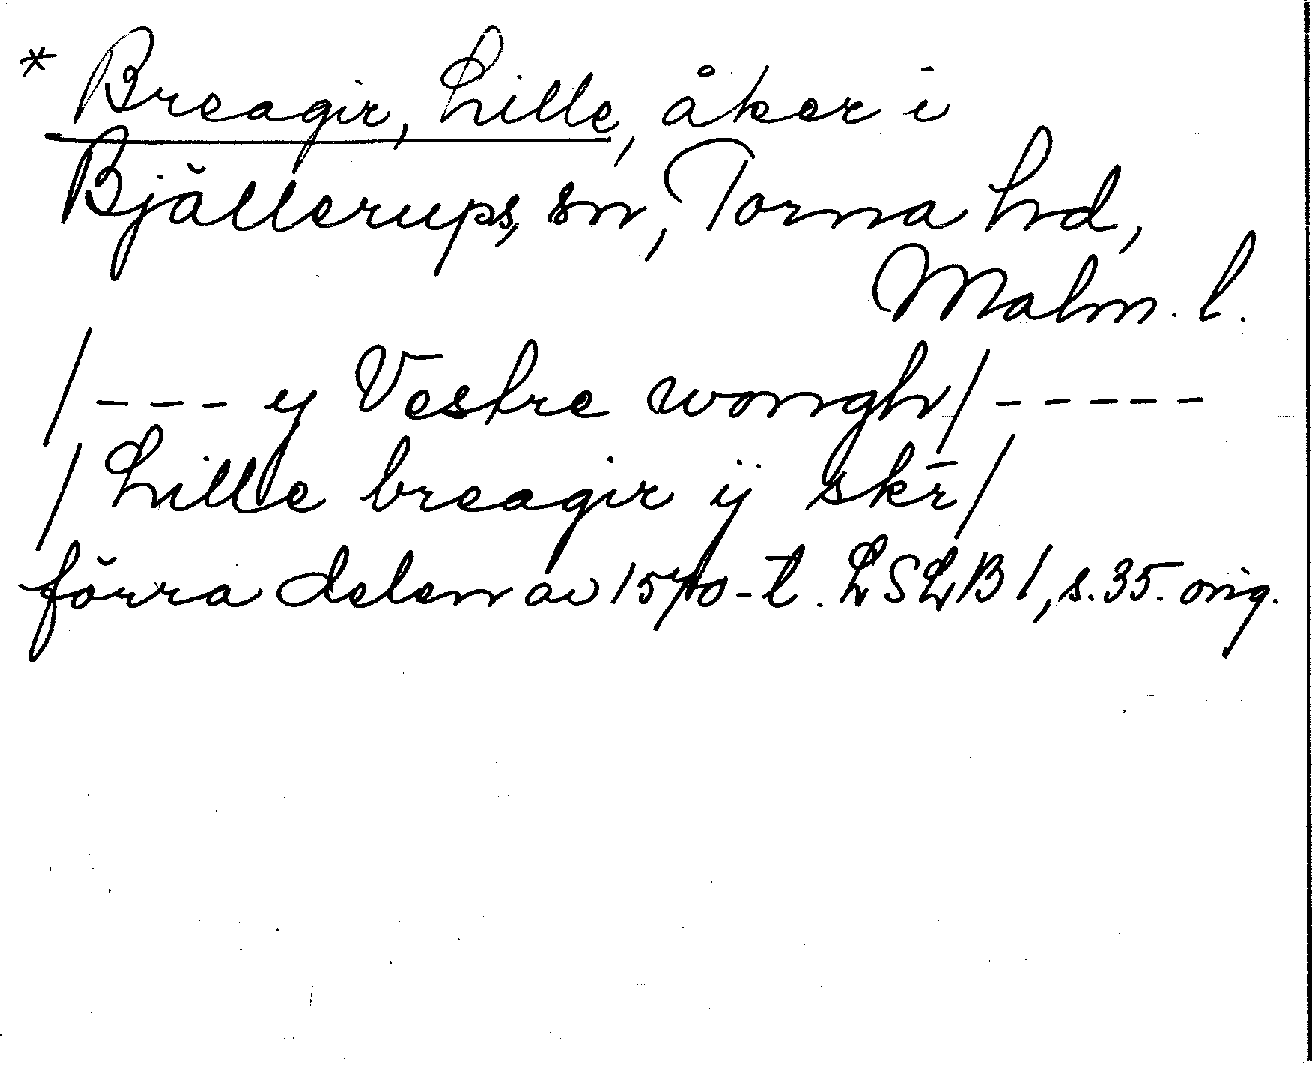 * Breagir, Lille, åker i
Bjällerups sn, Torna hd,
Malm. l.
/--- y Vestre wongh/-----
/Lille breagir ij skr̄/
förra delen av 1570-t. LSLB 1, s. 35. orig.